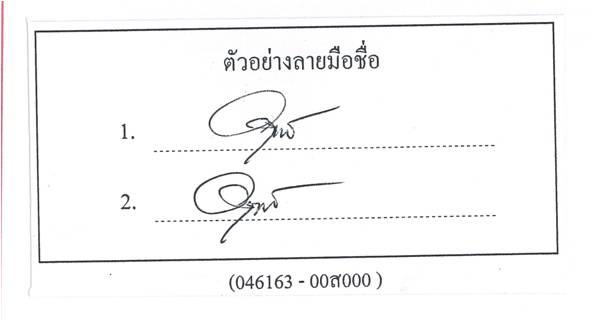 ตัวอย่างลายมือชื่อ
1.
2.
(046163 - 00ส000 )